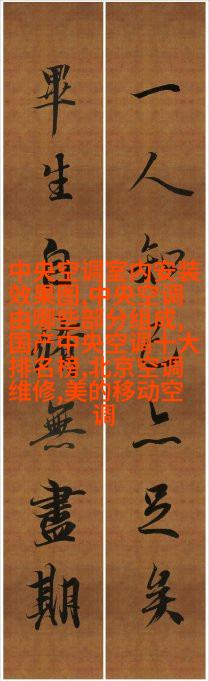 一人知己亦足矣
畢生自無盡期
中央空调室内安装
效果图,中央空调
由哪些部分组成,
国产中央空调十大
排名榜,北京空调
维修,美的移动空
调